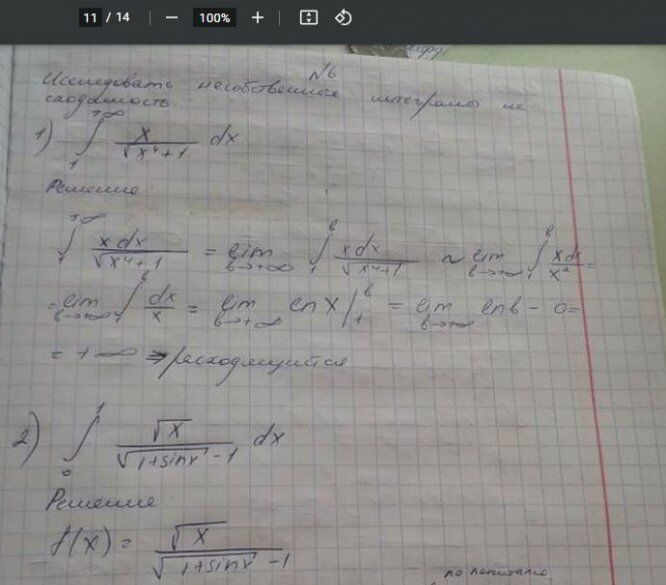 11 / 14 — 100% +
№6
Исследовать несобственные интегралы на
сходимость
1) ∫₁^{+∞} x/√(x⁴+1) dx
Решение
∫₁^{+∞} xdx/√(x⁴+1) = lim_{b→+∞} ∫₁^b xdx/√(x⁴+1) ~ lim_{b→+∞} ∫₁^b xdx/x² =
= lim_{b→+∞} ∫₁^b dx/x = lim_{b→+∞} ln x |₁^b = lim_{b→+∞} ln b - 0 =
= +∞ ⇒ расходящийся
2) ∫₀¹ √x/(√(1+sinx) - 1) dx
Решение
f(x) = √x/(√(1+sinx) - 1)